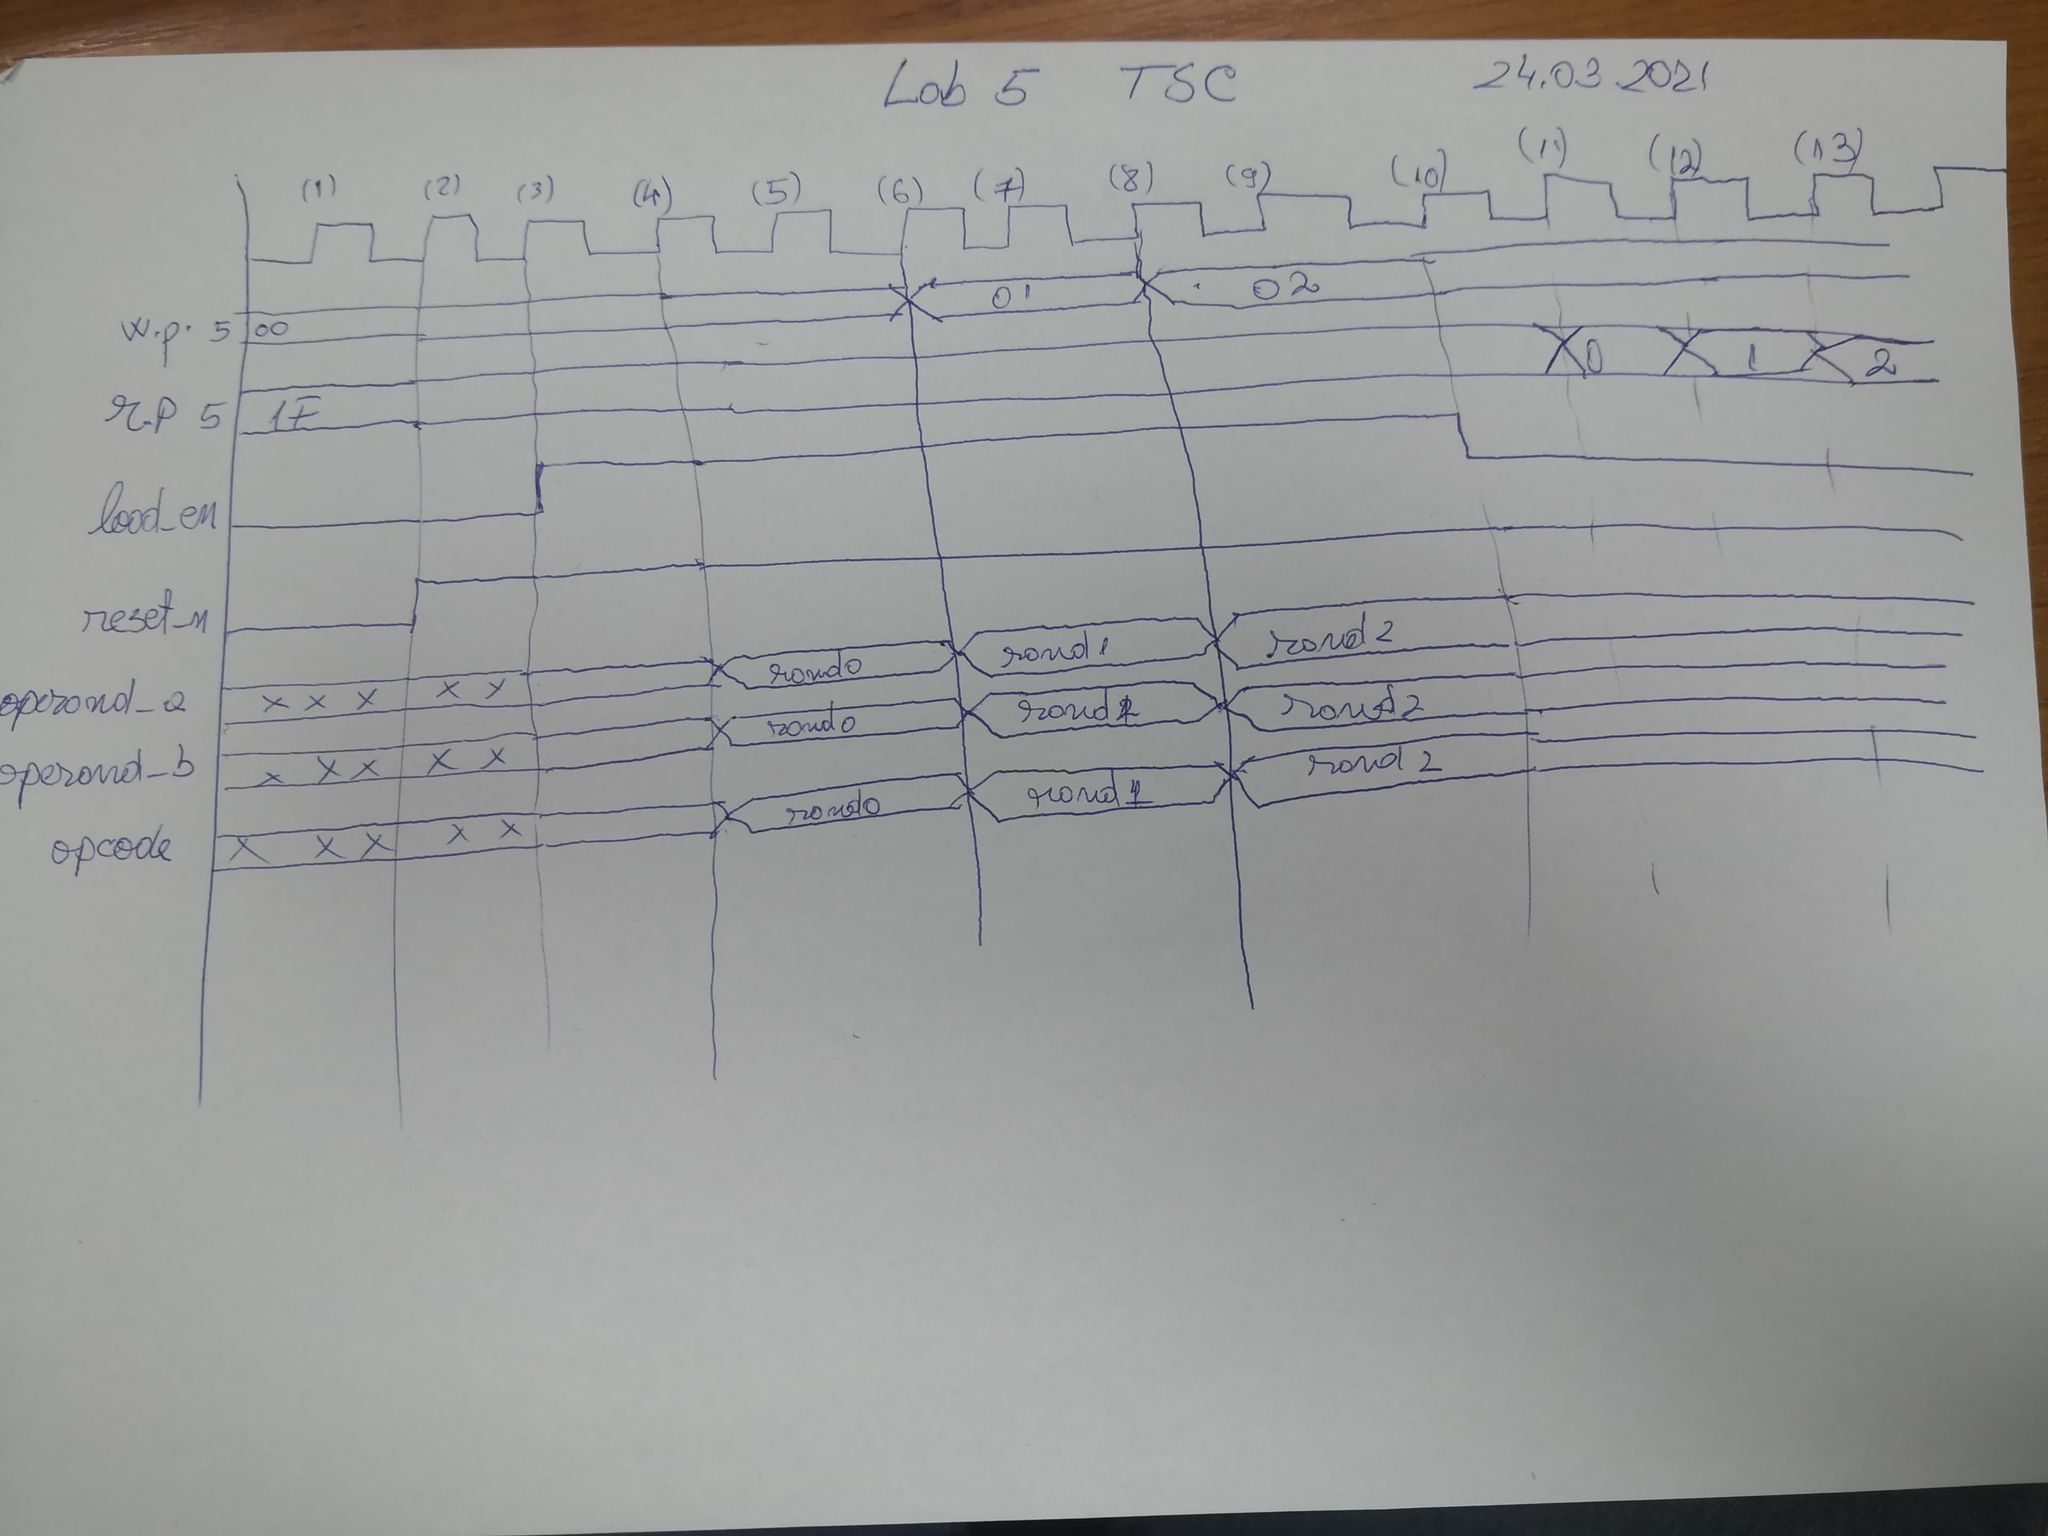 Lab 5 TSC 24.03.2021
(1) (2) (3) (4) (5) (6) (7) (8) (9) (10) (11) (12) (13)
w.p. 5 00 01 02
r.p 5 1F 0 1 2
load_en
reset_n
operand_a x x x x x rand0 rand1 rand2
operand_b x x x x x rand0 rand1 rand2
opcode x x x x x rand0 rand1 rand2